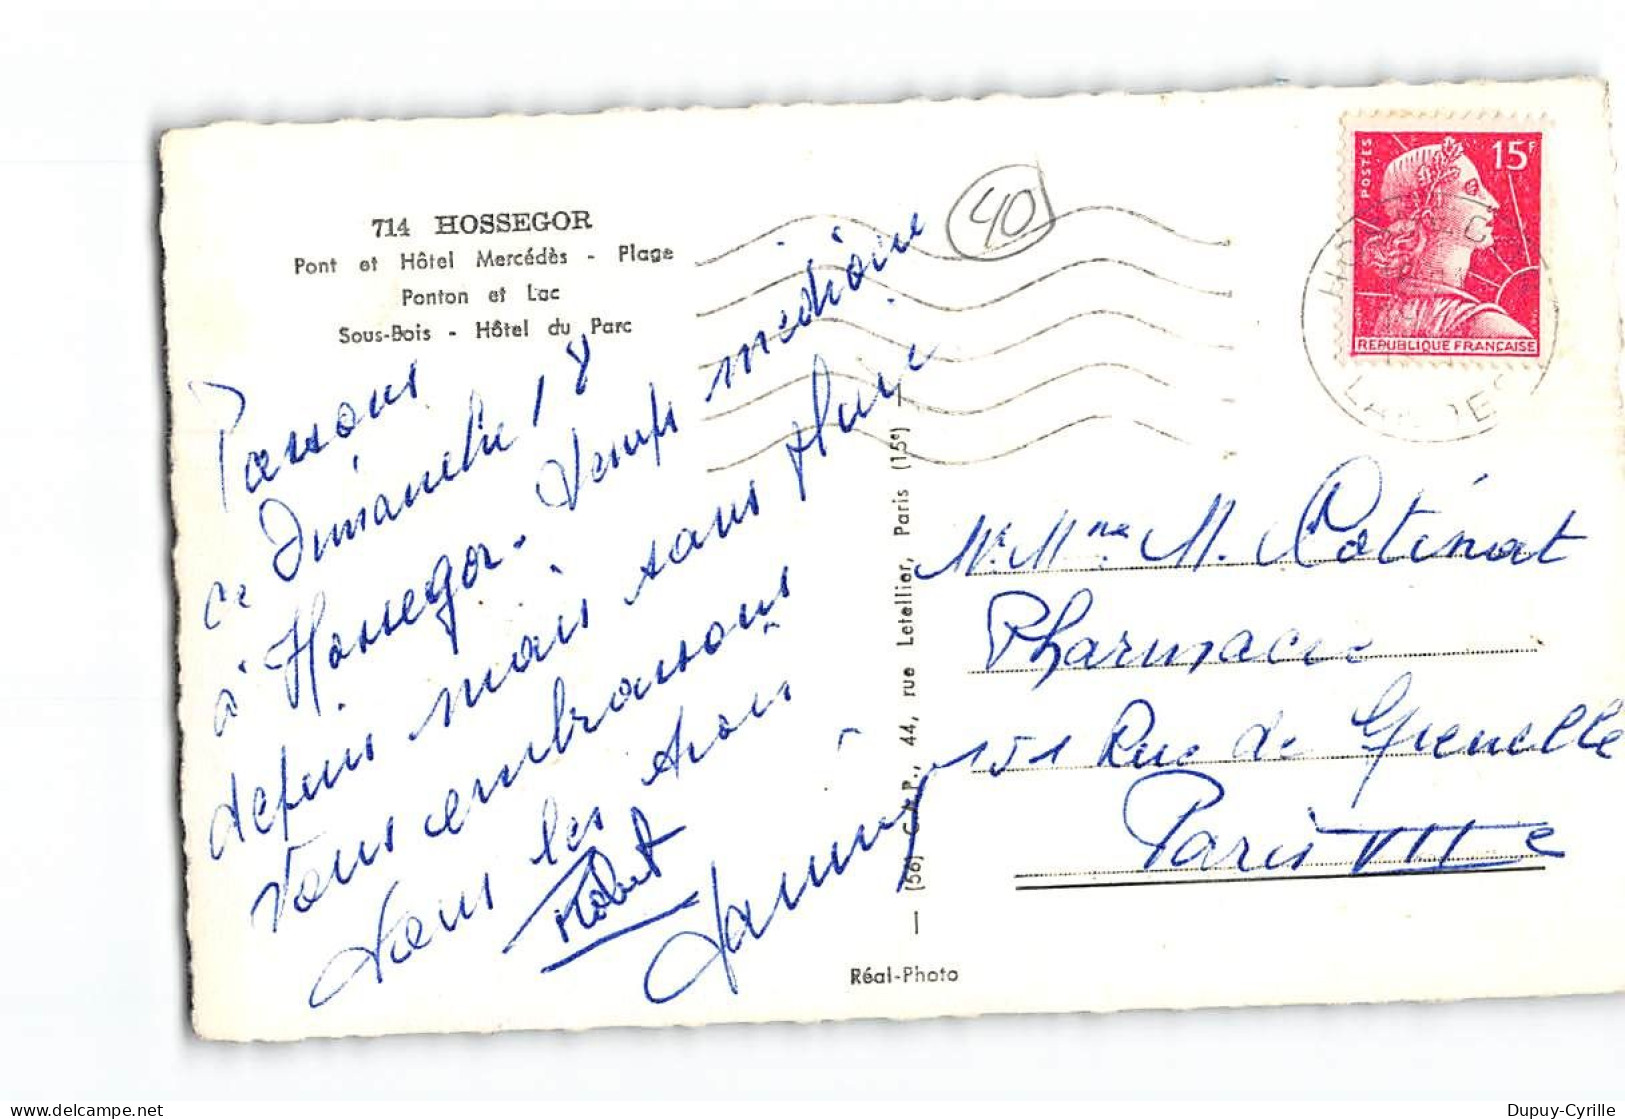 714 HOSSEGOR
Pont et Hôtel Mercédès - Plage
Ponton et Lac
Sous-Bois - Hôtel du Parc
40
POSTES
15F
REPUBLIQUE FRANÇAISE
LANDES
Passons
ce Dimanche 18
à Hossegor. Temps médiocre
depuis mais sans pluie
Vous embrassons
tous les trois
Robert
Jamy
— (56) C.A.P., 44, rue Letellier, Paris (15e) —
Mr. Mme M. Cotinat
Pharmacie
151 Rue de Grenelle
Paris VIIe
Réal-Photo
Dupuy-Cyrille